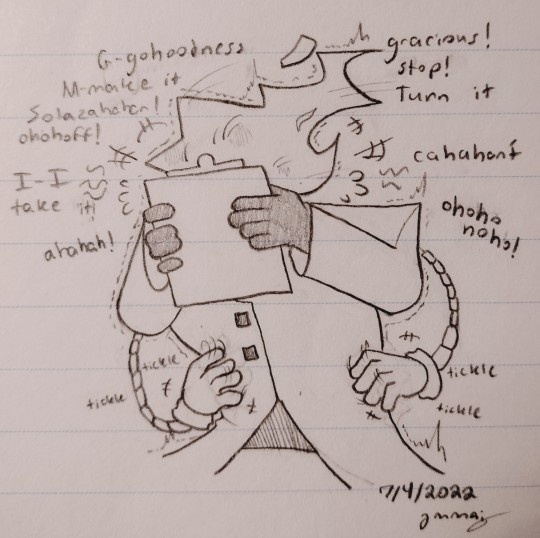 G-gohoodness
M-make it
Solazahahan!
ohohoff!
I-I
take it!
ahahah!
gracious!
stop!
Turn it
cahahant
ohoho
hoho!
tickle
tickle
tickle
tickle
7/4/2022